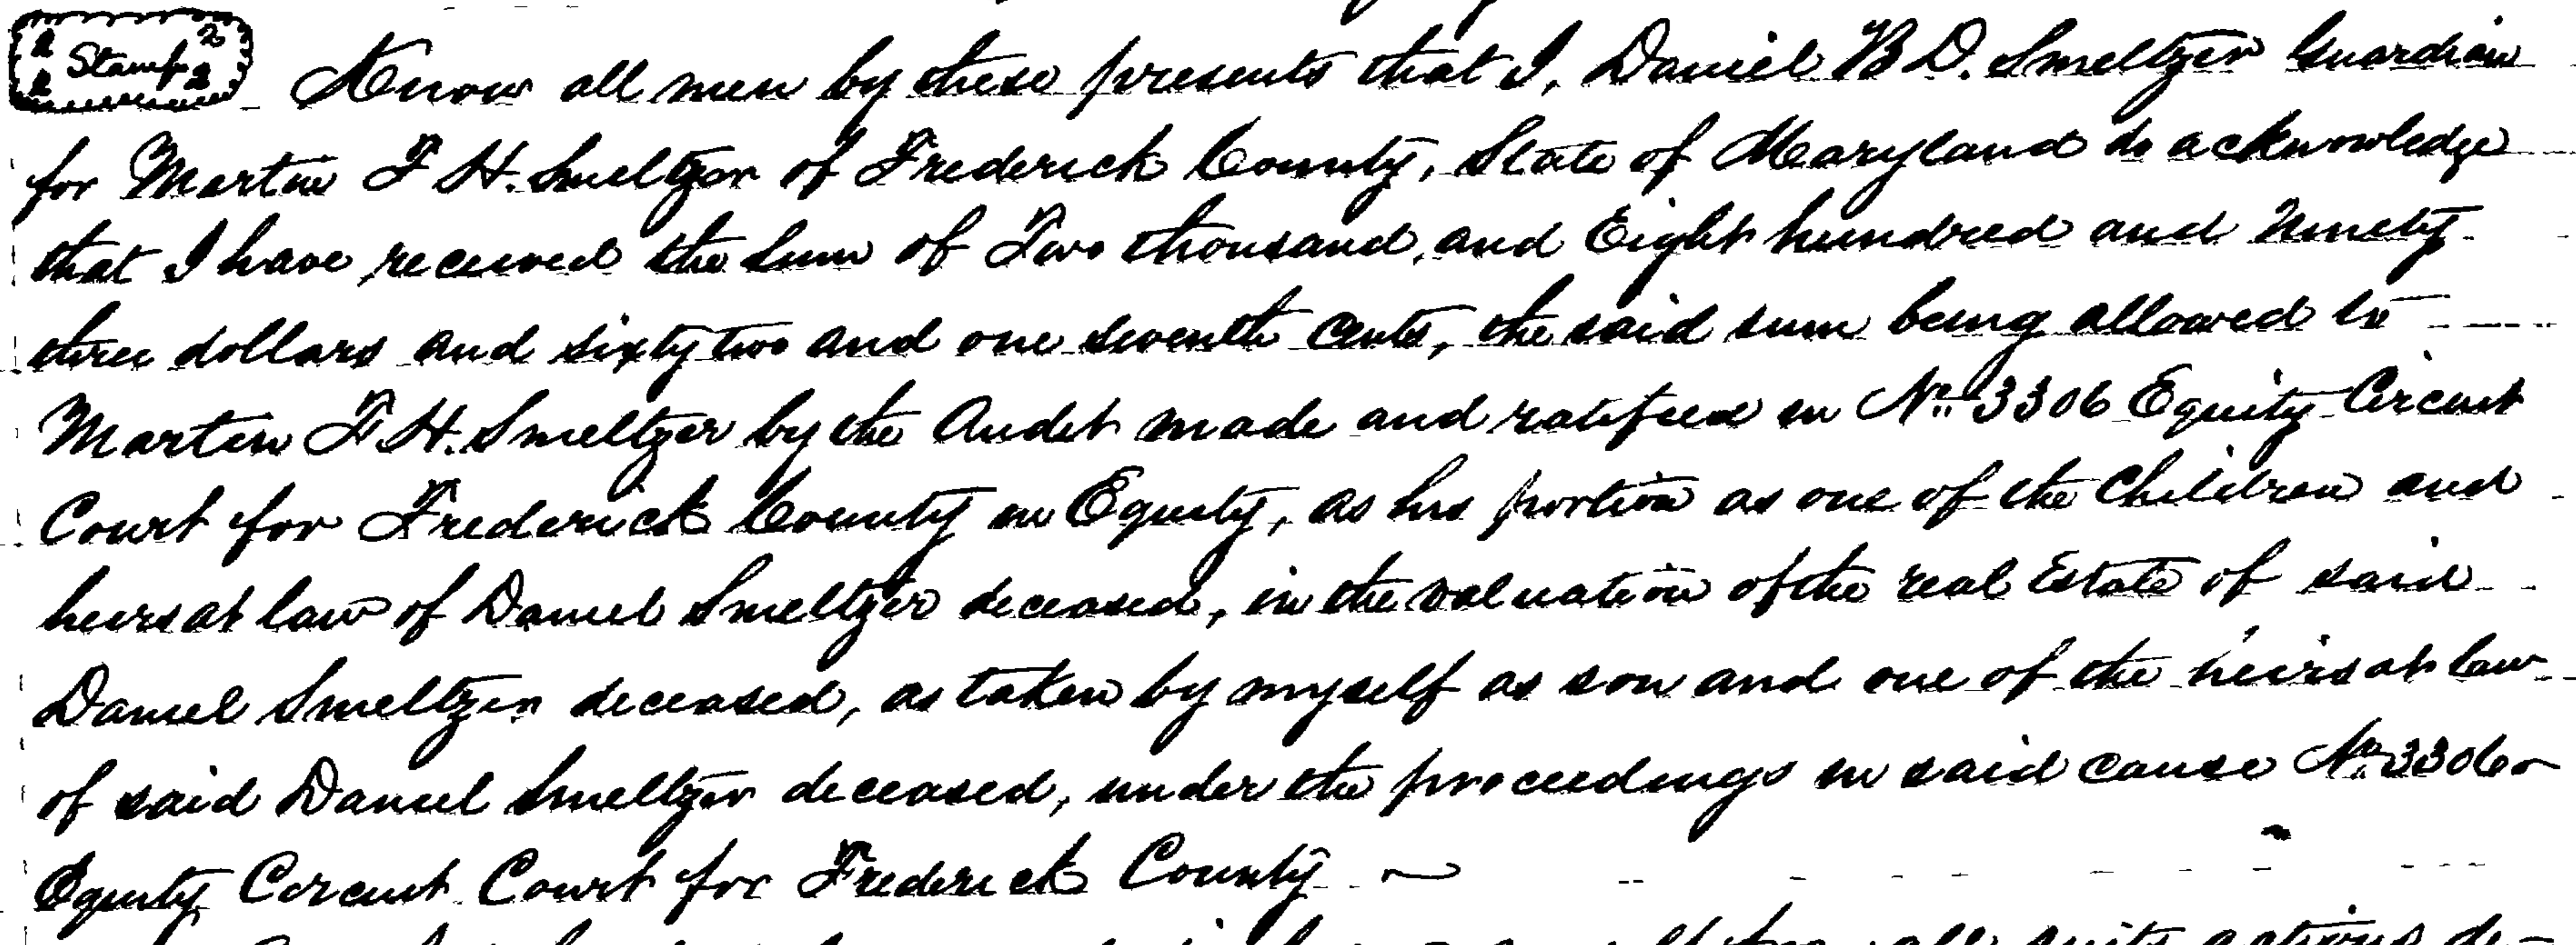 2 Stamp 2
2 2
Know all men by these presents that I, Daniel B D. Smeltzer Guardian
for Martin F H. Smeltzer of Frederick County, State of Maryland do acknowledge
that I have received the Sum of Two thousand, and Eight hundred and Ninety
three dollars and sixty two and one seventh Cents, the said sum being allowed to
Martin F H. Smeltzer by the Audit made and ratified in No. 3306 Equity Circuit
Court for Frederick County in Equity, as his portion as one of the Children and
heirs at law of Daniel Smeltzer deceased, in the valuation of the real Estate of said
Daniel Smeltzer deceased, as taken by myself as son and one of the heirs at law
of said Daniel Smeltzer deceased, under the proceedings in said cause No. 3306
Equity Circuit Court for Frederick County
all suits actions de-